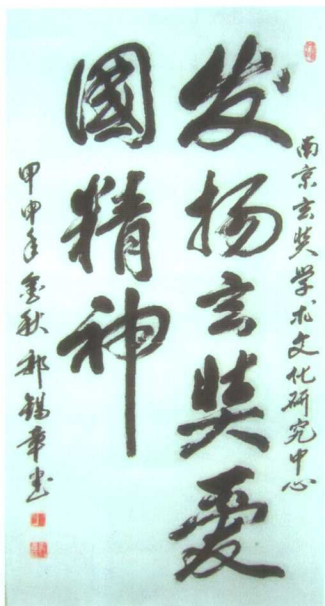 南京玄奘学术文化研究中心
发扬玄奘爱
國精神
甲申年金秋 郝锡章书